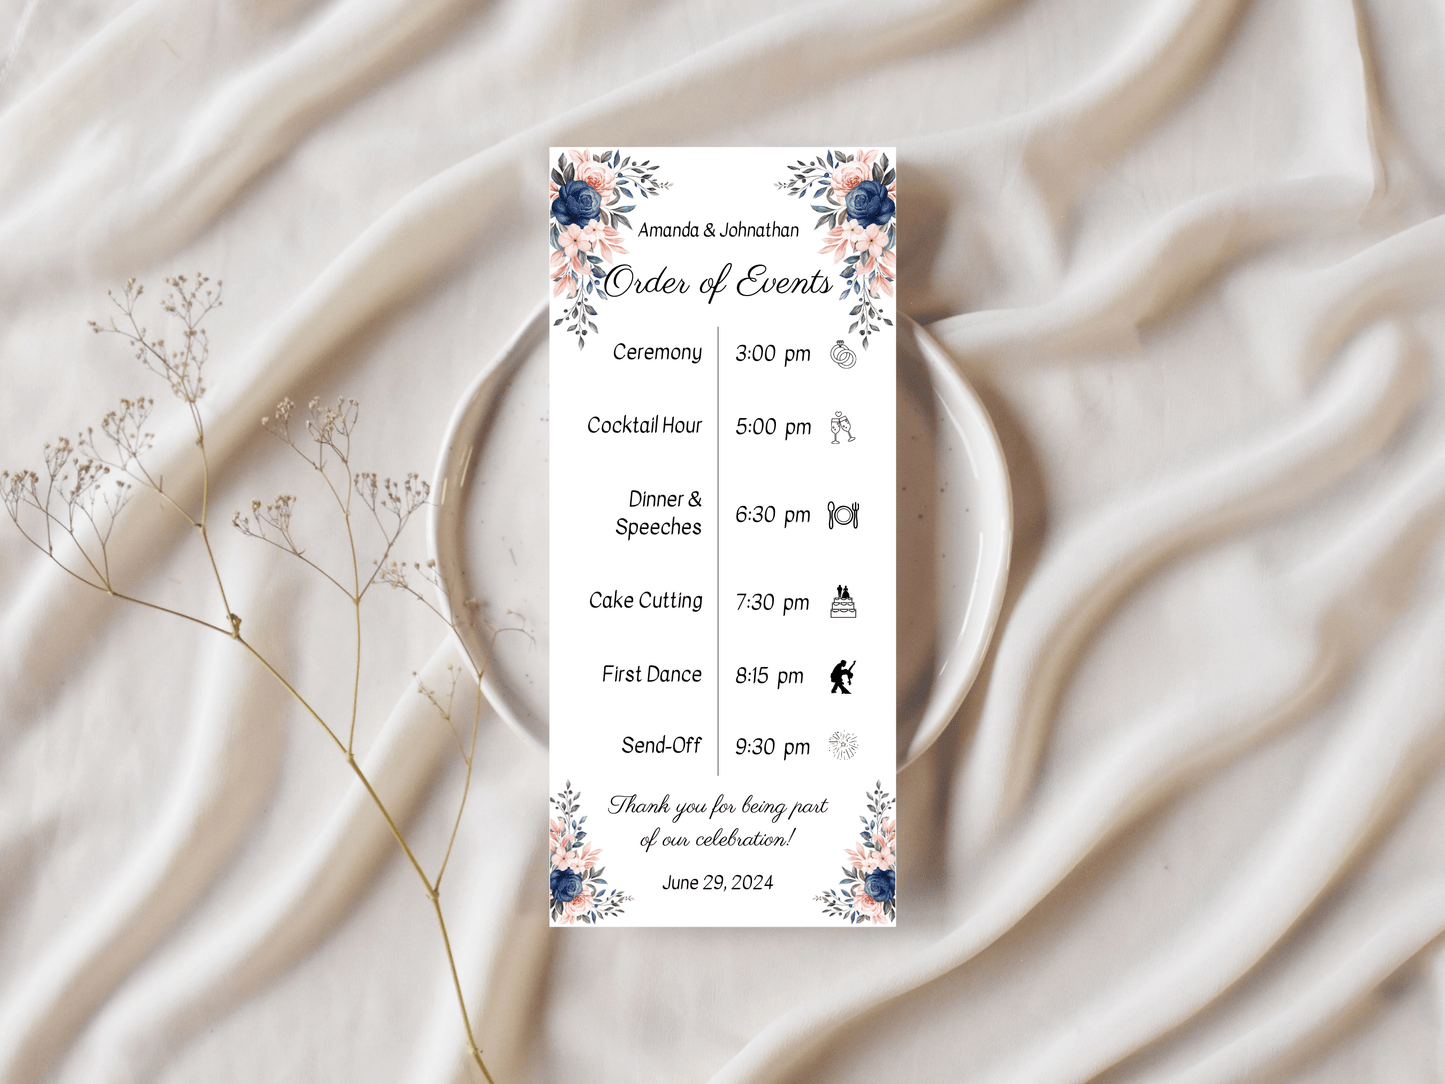 Amanda & Johnathan
Order of Events
Ceremony 3:00 pm
Cocktail Hour 5:00 pm
Dinner &
Speeches 6:30 pm
Cake Cutting 7:30 pm
First Dance 8:15 pm
Send-Off 9:30 pm
Thank you for being part
of our celebration!
June 29, 2024